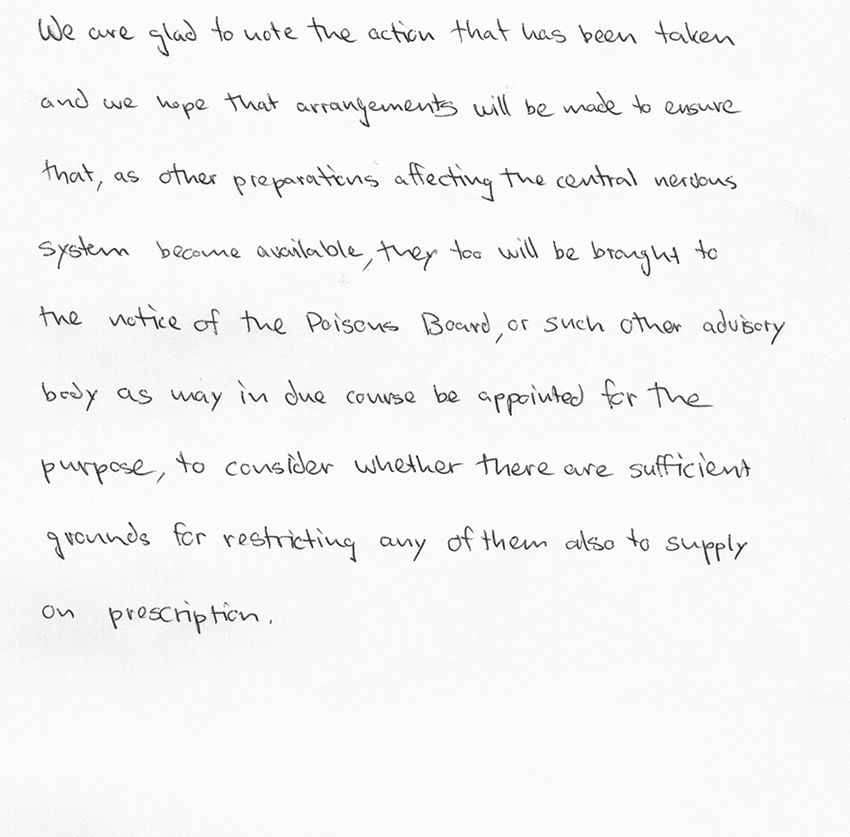 We are glad to note the action that has been taken
and we hope that arrangements will be made to ensure
that, as other preparations affecting the central nervous
system become available, they too will be brought to
the notice of the Poisons Board, or such other advisory
body as may in due course be appointed for the
purpose, to consider whether there are sufficient
grounds for restricting any of them also to supply
on prescription.